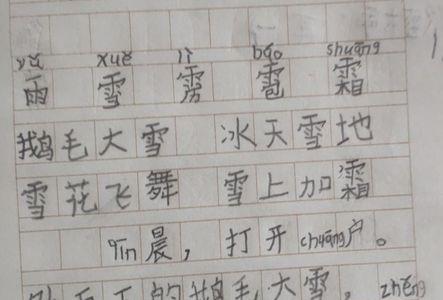 yǔ xuě lì báo shuāng
雨 雪 雳 雹 霜
鹅毛大雪 冰天雪地
雪花飞舞 雪上加霜
Yīn晨，打开chuāng户。
的鹅毛大雪，zhěng